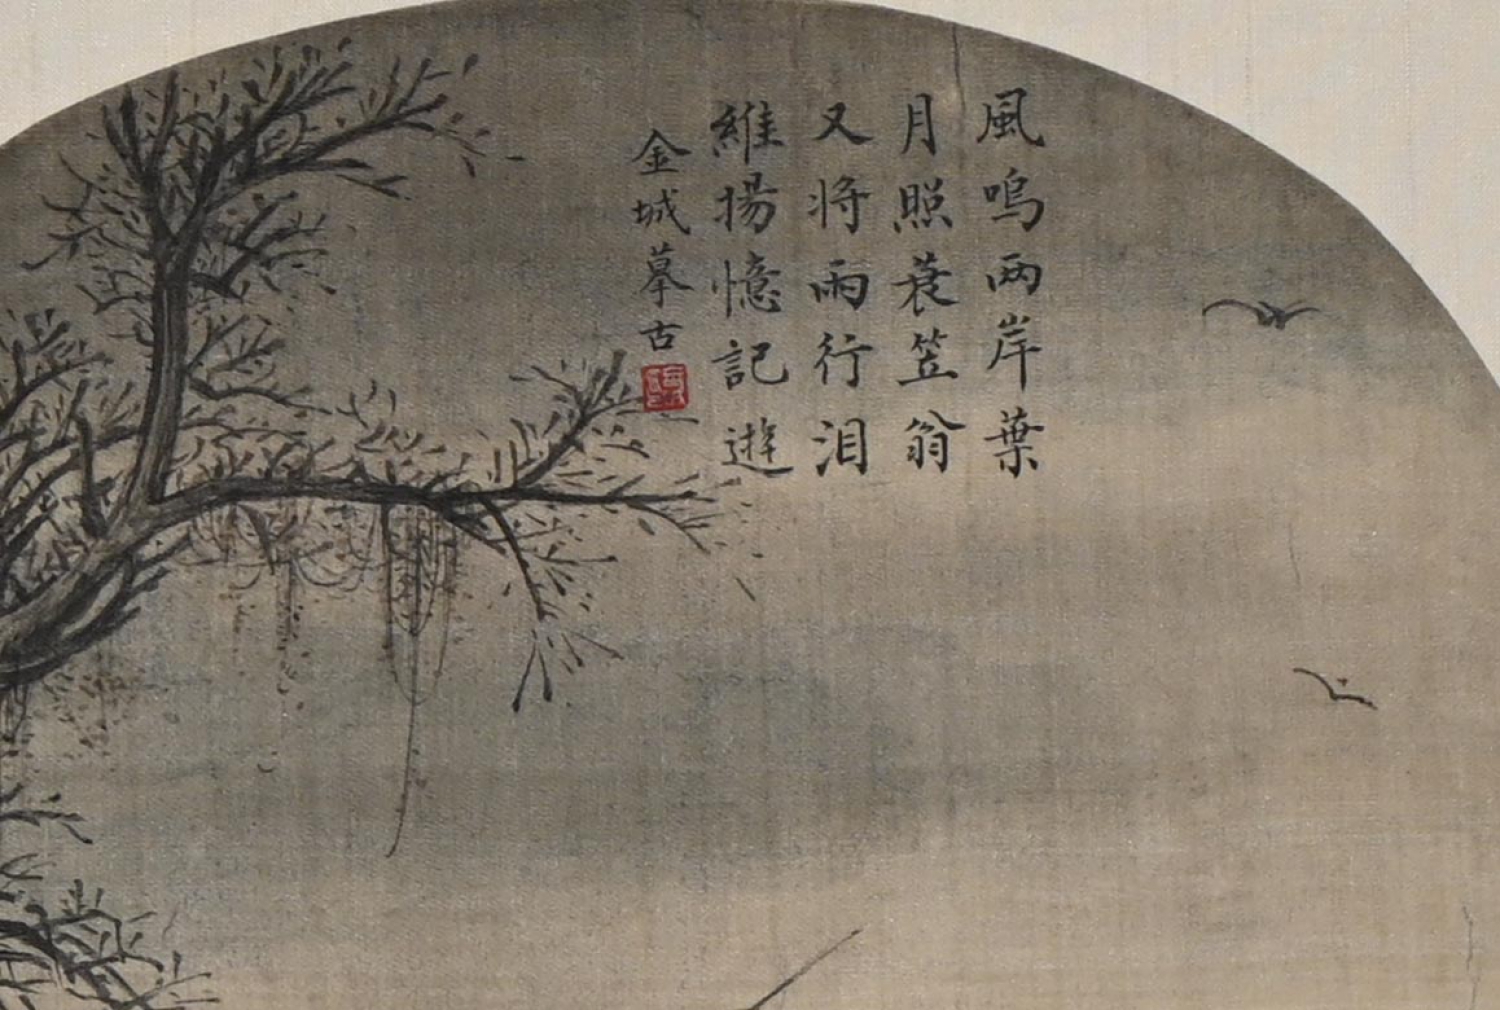 風嗚两岸葉
月照蓑笠翁
又将雨行泪
維揚憶記遊
金城摹古